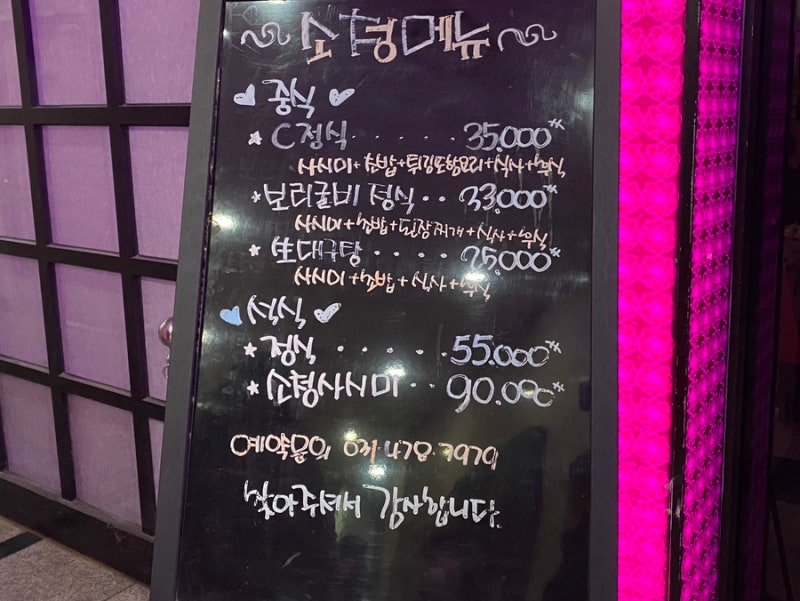 소정메뉴
중식
C정식 35.000
사시미+초밥+튀김포함요리+식사+후식
보리굴비 정식 33.000
사시미+초밥+된장찌개+식사+후식
生대구탕 25.000
사시미+초밥+식사+후식
석식
정식 55.000
소정사시미 90.000
예약문의 031.478.7979
찾아주셔서 감사합니다.